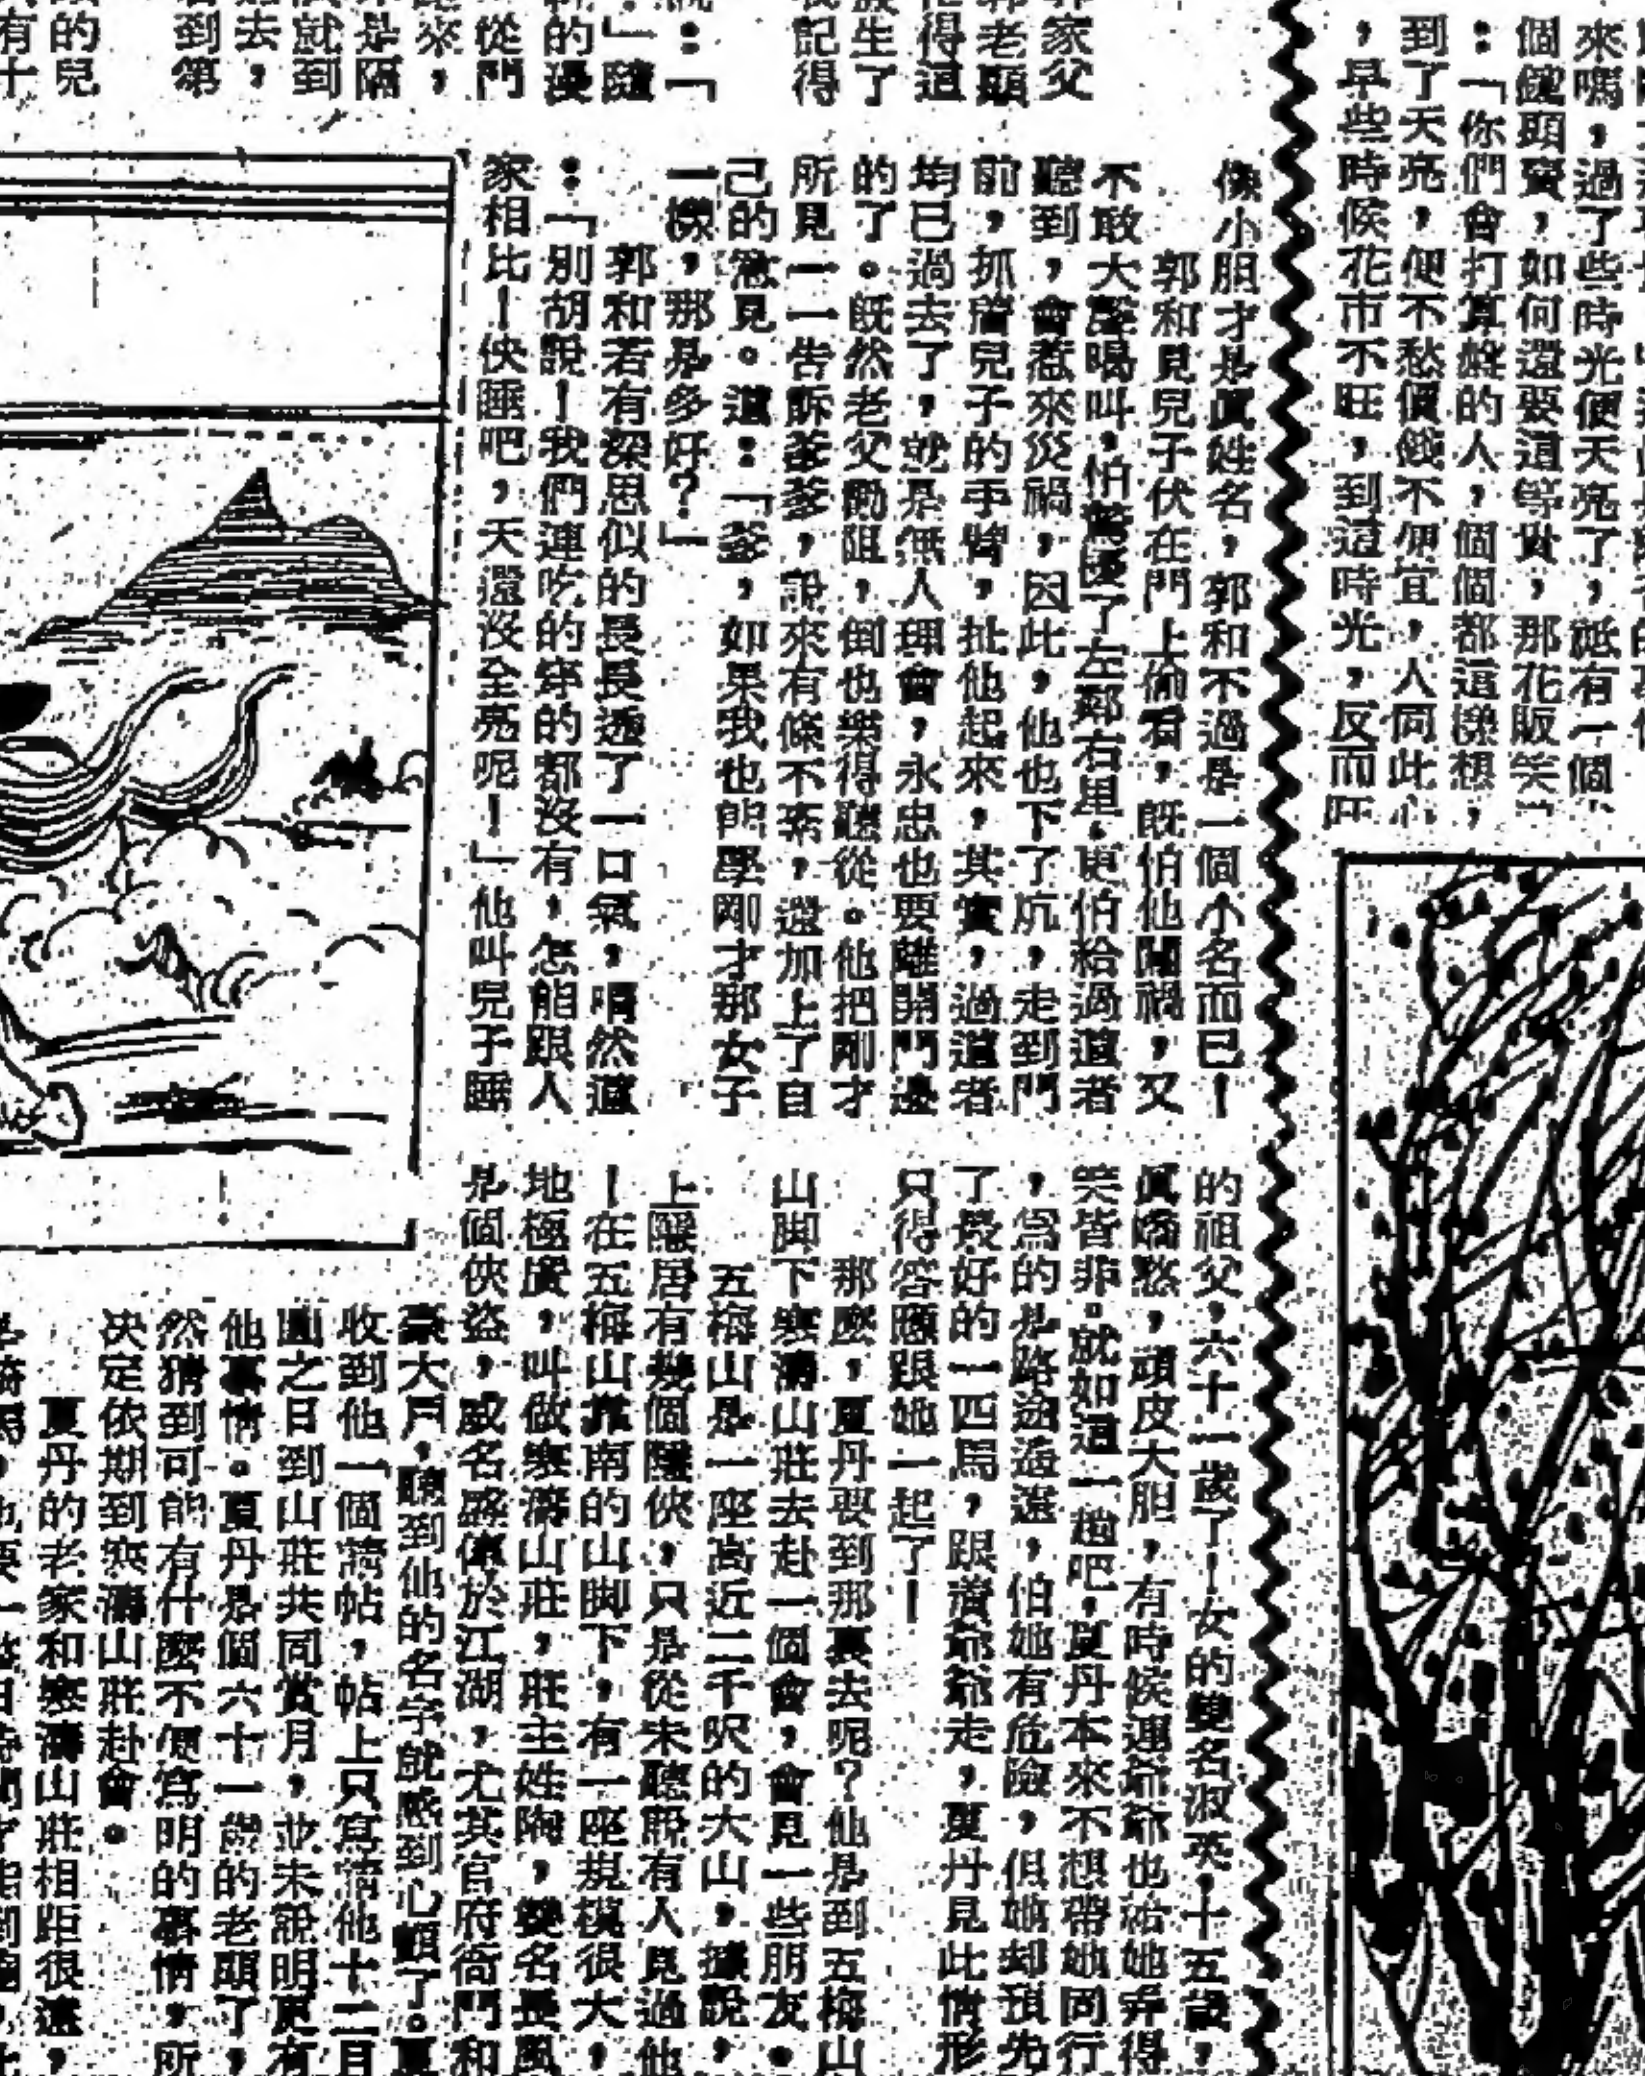 來嗎，過了些時光便天亮了，祇有一個
個饅頭賣，如何還要這等貴，那花販笑
：「你們會打算盤的人，個個都這樣想，
到了天亮，便不愁價錢不便宜，人同此心
，早些時候花市不旺，到這時光，反而旺
家父
郭老頭
得這
發生了
記得
：「
」隨
的漫
從門
來，
是隔
就到
去，
到第
的兒
有十
像小胆才是真姓名，郭和不過是一個小名而已！
郭和見兒子伏在門上偷看，既怕他闖禍，又
不敢大聲喝叫，怕驚擾了左鄰右里，更怕給過道者
聽到，會惹來災禍，因此，他也下了炕，走到門
前，抓着兒子的手臂，扯他起來，其實，過道者
均已過去了，就是無人理會，永忠也要離開門邊
的了。既然老父勸阻，倒也樂得聽從。他把剛才
所見一一告訴爹爹，說來有條不紊，還加上了自
己的意見。道：「爹，如果我也能學剛才那女子
一樣，那是多好？」
郭和若有深思似的長長透了一口氣，喟然道
：「別胡說！我們連吃的穿的都沒有，怎能跟人
家相比！快睡吧，天還沒全亮呢！」他叫兒子睡
的祖父，六十一歲了！女的雙名淑英，十五歲，
真嬌憨，頑皮大胆，有時候連爺爺也給她弄得
笑皆非。就如這一趟吧，夏丹本來不想帶她同行
，為的是路途遙遠，怕她有危險，但她却預先
了最好的一匹馬，跟着爺爺走，夏丹見此情形
只得答應跟她一起了！
那麽，夏丹要到那裏去呢？他是到五梅山
山脚下寒濤山莊去赴一個會，會見一些朋友。
五梅山是一座高近二千呎的大山，據說，
上隱居有幾個隱俠，只是從未聽說有人見過他
！在五梅山靠南的山脚下，有一座規模很大，
地極廣，叫做寒濤山莊，莊主姓陶，雙名長風
是個俠盜，威名盛傳於江湖，尤其官府衙門和
豪大戶，聽到他的名字就感到心顫了。夏
收到他一個請帖，帖上只寫請他十二月
圓之日到山莊共同賞月，並未說明更有
他事情。夏丹是個六十一歲的老頭了，
然猜到可能有什麽不便寫明的事情，所
决定依期到寒濤山莊赴會。
夏丹的老家和寒濤山莊相距很遠，